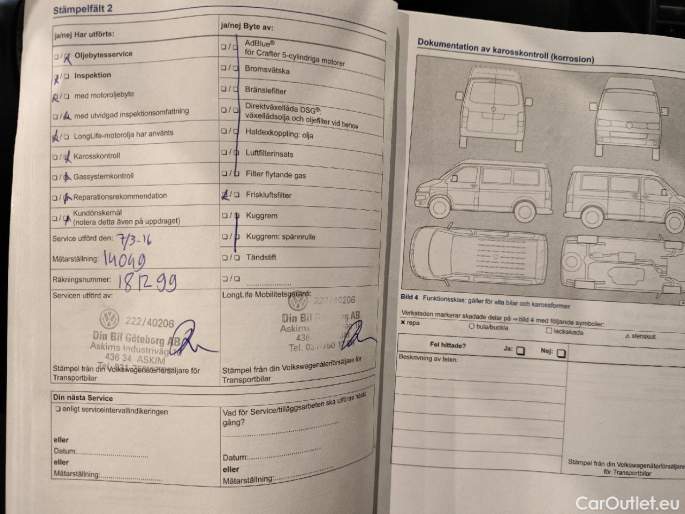 Stämpelfält 2
ja/nej Har utförts:
Oljebytesservice
Inspektion
med motoroljebyte
med utvidgad inspektionsomfattning
LongLife-motorolja har använts
Karosskontroll
Gassystemkontroll
Reparationsrekommendation
Kundönskemål
(notera detta även på uppdraget)
Service utförd den: 7/3-16
Mätarställning: 14049
Räkningsnummer:
Servicen utförd av:
222/40206
Din Bil Göteborg AB
Askims Industriväg
436 34 ASKIM
Stämpel från din Volkswagenåterförsäljare för
Transportbilar
ja/nej Byte av:
AdBlue®
för Crafter 5-cylindriga motorer
Bromsvätska
Bränslefilter
Direktväxellåda DSG®:
växellådsolja och oljefilter vid behov
Haldexkoppling: olja
Luftfilterinsats
Filter flytande gas
Friskluftsfilter
Kuggrem
Kuggrem: spännrulle
Tändstift
LongLife Mobilitetsgaranti:
222/40206
Din Bil AB
Askims
436
Tel.
Stämpel från din Volkswagenåterförsäljare för
Transportbilar
Din nästa Service
enligt serviceintervallindikeringen
eller
Datum:
eller
Mätarställning:
Vad för Service/tilläggsarbeten ska utföras nästa
gång?
Datum:
eller
Mätarställning:
Dokumentation av karosskontroll (korrosion)
Bild 4 Funktionsskiss: gäller för alla bilar och karossformer.
Verkstaden markerar skadade delar på ⇒ bild 4 med följande symboler:
x repa
o bula/buckla
□ lackskada
△ stenskott
Fel hittade? Ja: Nej:
Beskrivning av felen:
Stämpel från din Volkswagenåterförsäljare
för Transportbilar
CarOutlet.eu